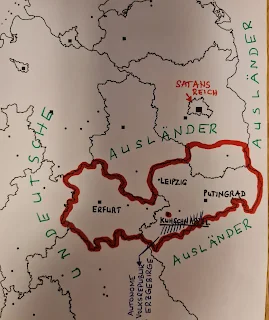 SATANS
REICH
AUSLÄNDER
AUSLÄNDER
UNDEUTSCHE
LEIPZIG
PUTINGRAD
ERFURT
AUSLÄNDER
AUTONOME
VOLKSREPUBLIK
ERZGEBIRGE